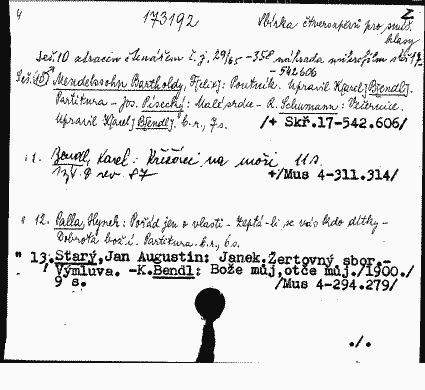 4 173192 Sbírka čtverozpěvů pro smíš. Z
hlasy
Seš. 10 ztracen čtenářem č.j. 29/65 -358 náhrada mikrofilm skř. 17-
-542.606
Seš. 10) Mendelssohn Bartholdy, F[elix]: Poutník. Upravil K[arel] B[endl].
Partitura - Jos. Písecký: Malé srdce - R. Schumann: Vězenice.
Upravil K[arel] B[endl]. b.r., 7 s. /+ Skř.17-542.606/
" 1. Bendl, Karel: Křižáci na moři 11 s.
rev. 87 +/Mus 4-311.314/
" 12. Palla, Hynek: Pořád jen o vlasti - Zeptá-li se vás kdo dítky -
Dobrota boží. Partitura. b.r., 6 s.
" 13. Starý, Jan Augustin: Janek. Žertovný sbor.-
Výmluva. -K. Bendl: Bože můj, otče můj. /1900./
9 s. /Mus 4-294.279/
./.